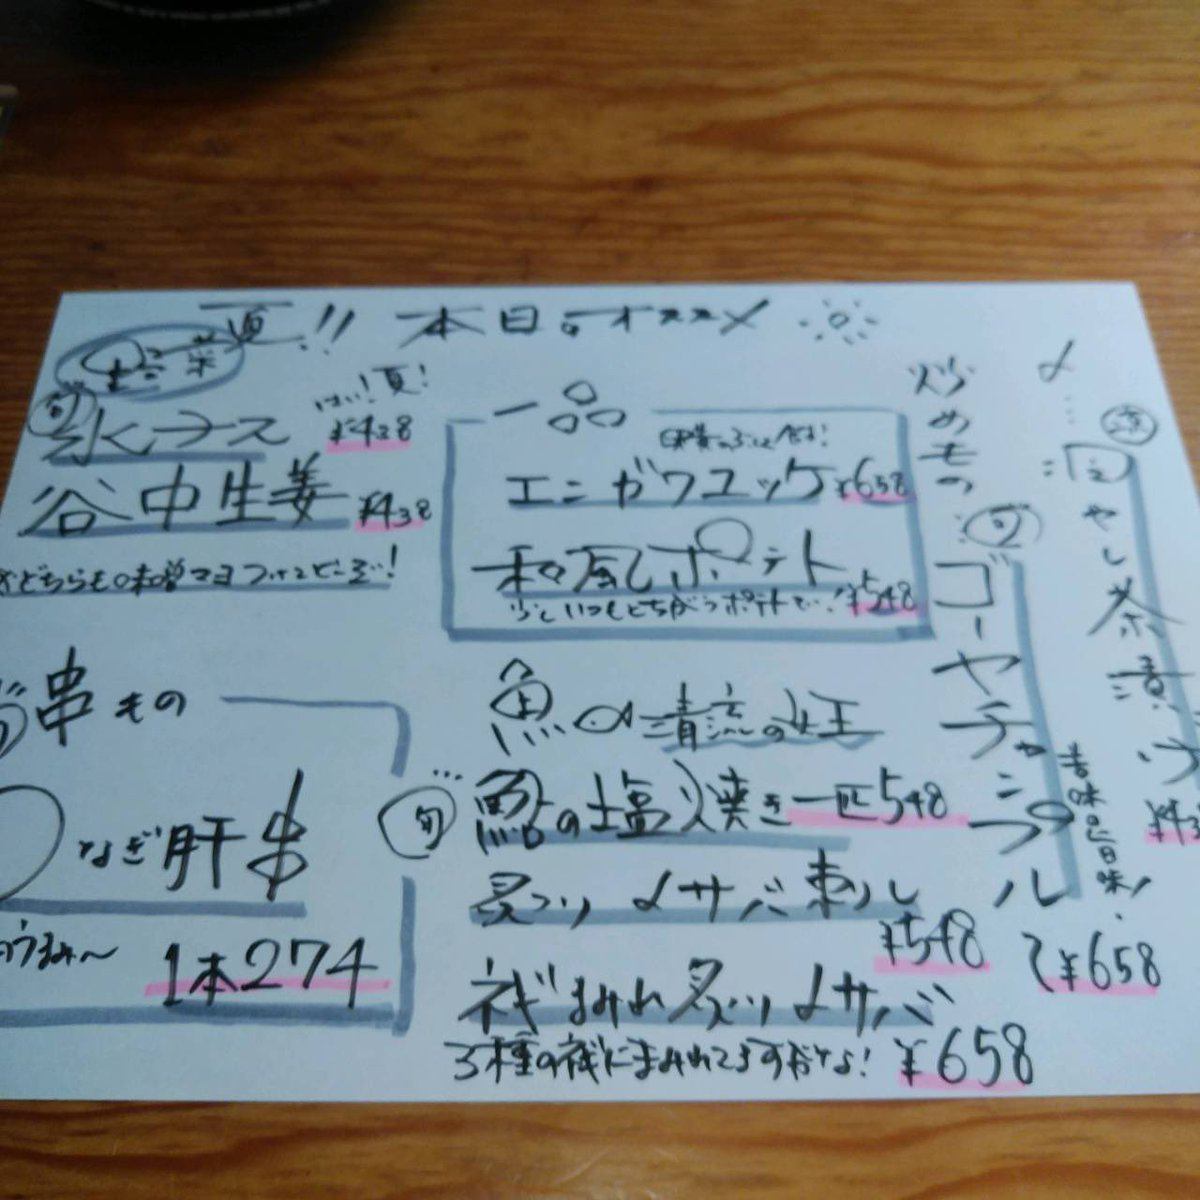 夏!! 本日のオススメ
野菜
旬
水ナース ¥438
はい!夏!
谷中生姜 ¥438
※どちらも味噌マヨつけてどーぞ!
串もの
なぎ肝串
うまみ〜
1本274
一品
エンガワユッケ ¥658
和風ポテト
少しいつもとちがうポテトで! ¥548
魚 清流の女王
旬
鮎の塩焼き 一匹548
炙りメサバ刺し
¥548
ネギまみれ炙りメサバ
3種のネギにまみれてますがなな! ¥658
炒めもの
旬
ゴーヤチャンプル
苦味旨味!
¥658
〆
冷やし茶漬け